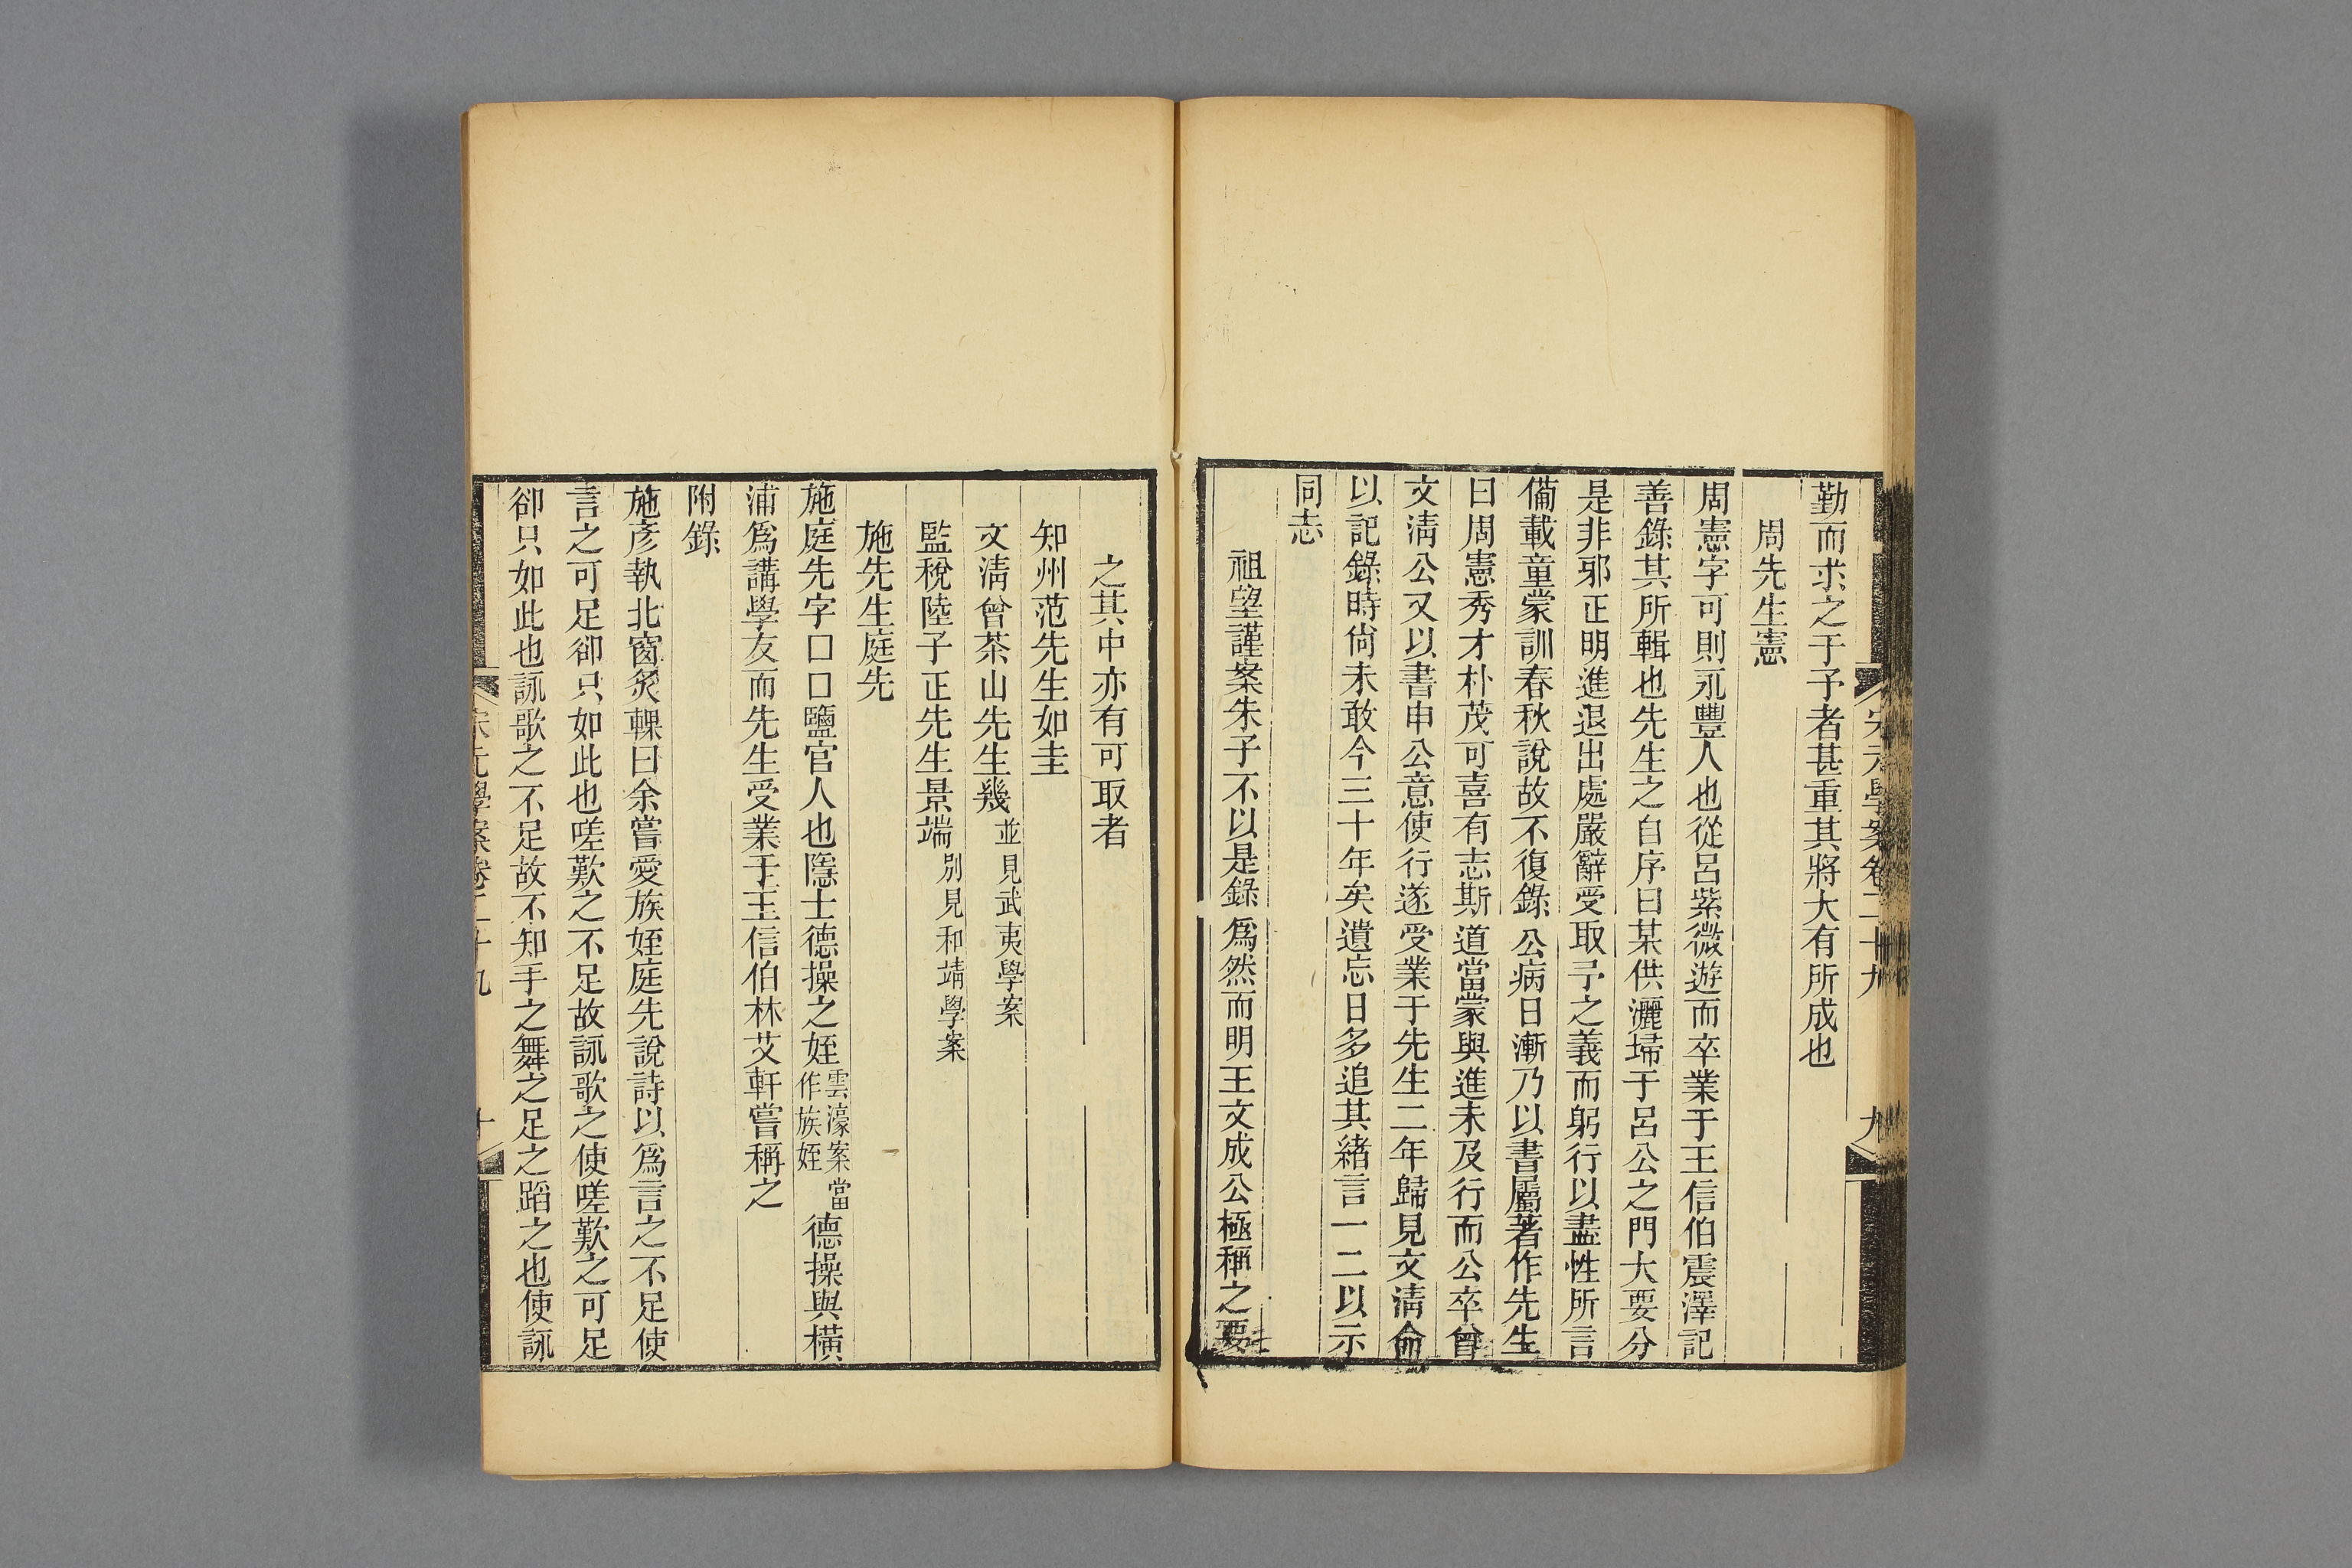 宋元學案卷二十九
九
勤而求之于予者甚重其將大有所成也
周先生憲
周憲字可則永豐人也從呂紫微遊而卒業于王信伯震澤記
善錄其所輯也先生之自序曰某供灑埽于呂公之門大要分
是非邪正明進退出處嚴辭受取予之義而躬行以盡性所言
僃載童蒙訓春秋說故不復錄公病日漸乃以書屬著作先生
曰周憲秀才朴茂可喜有志斯道當蒙與進未及行而公卒曾
文淸公又以書申公意使行遂受業于先生二年歸見文淸俞
以記錄時尙未敢今三十年矣遺忘日多追其緖言一二以示
同志
祖望謹案朱子不以是錄爲然而明王文成公極稱之要
之其中亦有可取者
知州范先生如圭
文淸曾茶山先生幾並見武夷學案
監稅陸子正先生景端別見和靖學案
施先生庭先
施庭先字口口鹽官人也隱士德操之姪雲濠案當作族姪德操與橫
浦爲講學友而先生受業于王信伯林艾軒嘗稱之
附錄
施彥執北窗炙輠曰余嘗愛族姪庭先說詩以爲言之不足使
言之可足卻只如此也嗟歎之不足故詠歌之使嗟歎之可足
卻只如此也詠歌之不足故不知手之舞之足之蹈之也使詠
宋元學案卷二十九
十